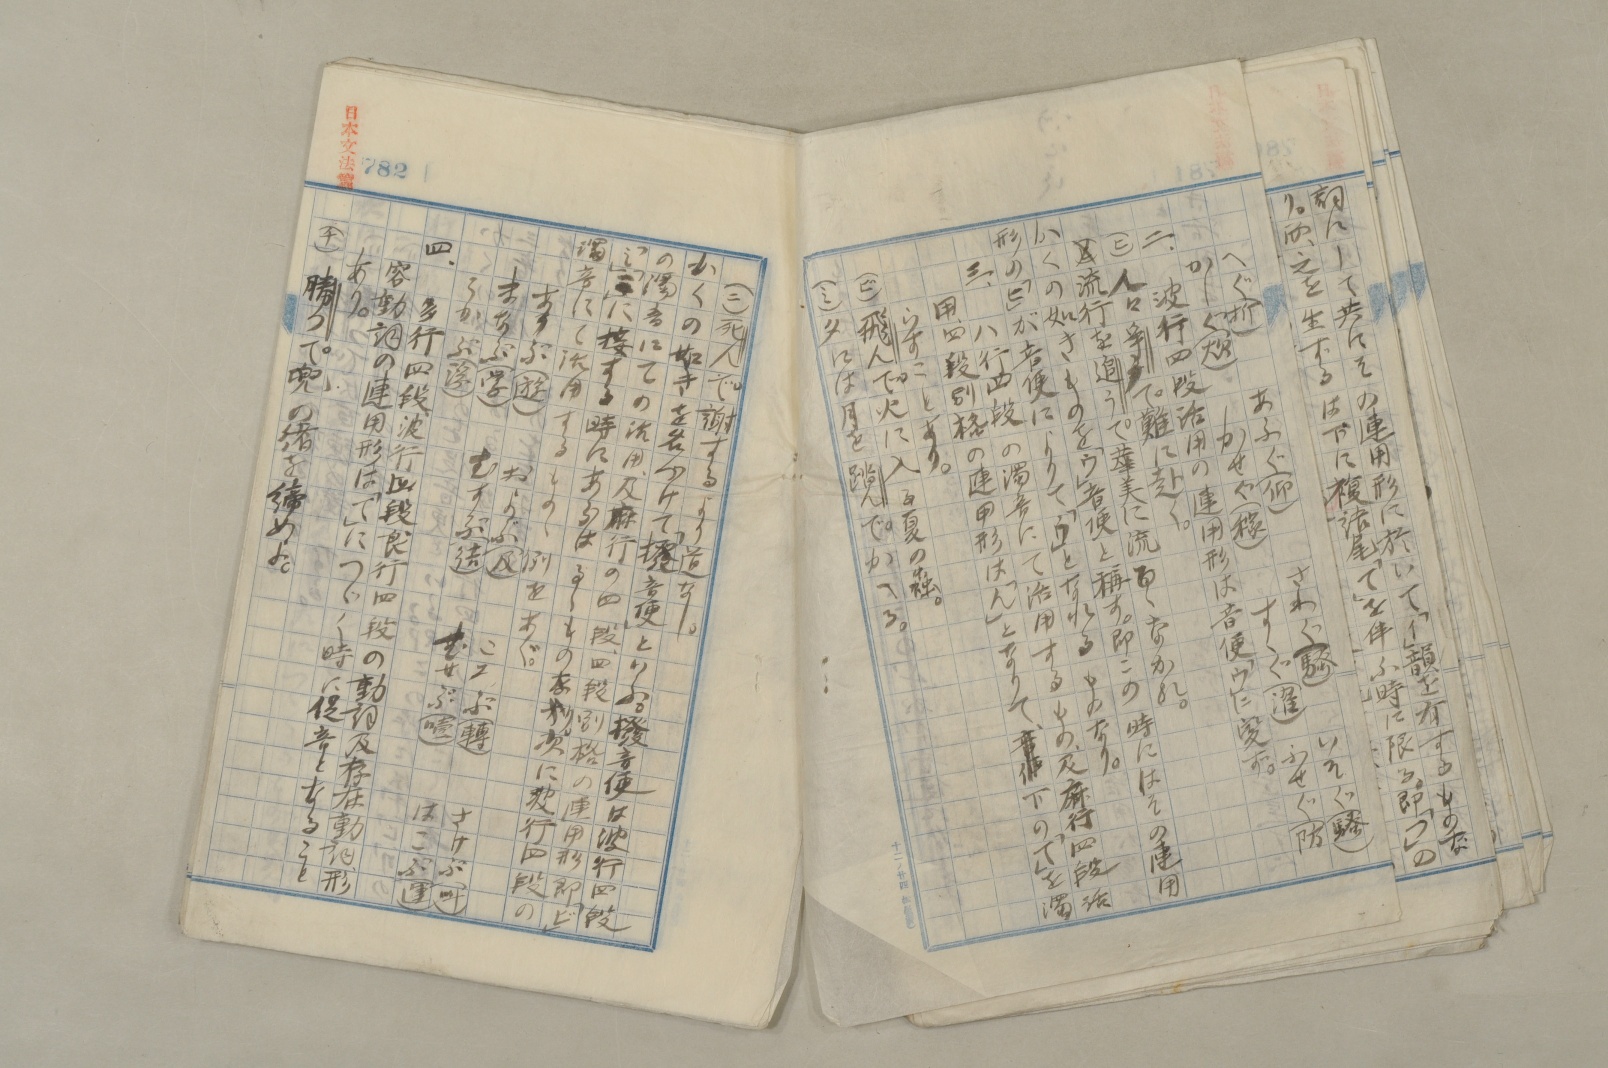 詞にして共にその連用形に於いて「イ」韻を有するものな
り。而、之を生ずるは下に複語尾「て」を伴ふ時に限る。即「つ」の
へぐ(折) あふぐ(仰) さわぐ(騒) いそぐ(騒)
かしぐ(炊) かせぐ(稼) すゝぐ(濯) ふせぐ(防
二、波行四段活用の連用形は音便「ウ」に変ず。
(ヒ)人口争うて。難に赴く。
流行を追うて。華美に流るゝなかれ。
かくの如きものを「ウ」音便と稱す。即この時にはその連用
形の「ヒ」が音便によりて「ウ」となれるものなり。
三、ハ行四段の濁音にて活用するもの、及麻行四段活
用、四段別格の連用形は「ん」となりて、下の「て」を濁
らすことあり。
(ビ)飛んで火に入る夏の蟲。
(ミ)夕には月を踏んで。かへる。
日本文法論
782
(ニ)死んで謝するより道なし。
かくの如きを名づけて「撥音便」といふ。撥音便は波行四段
の濁音にての活用、及麻行の四段、四段別格の連用形即「ビ」
「ミ」「ニ」に接する時にあらはるゝもの本則次に波行四段の
濁音にて活用するものゝ例をあぐ。
あすぶ(遊) およぶ(及) ころぶ(轉) さけぶ(叫)
まなぶ(学) むすぶ(結) むせぶ(噎) はこぶ(運)
うかぶ(浮)
四、多行四段波行四段良行四段の動詞及存在動詞形
容動詞の連用形は「て」につゞく時に促音となること
あり。
(チ)勝つて。兜の緒を締めよ。